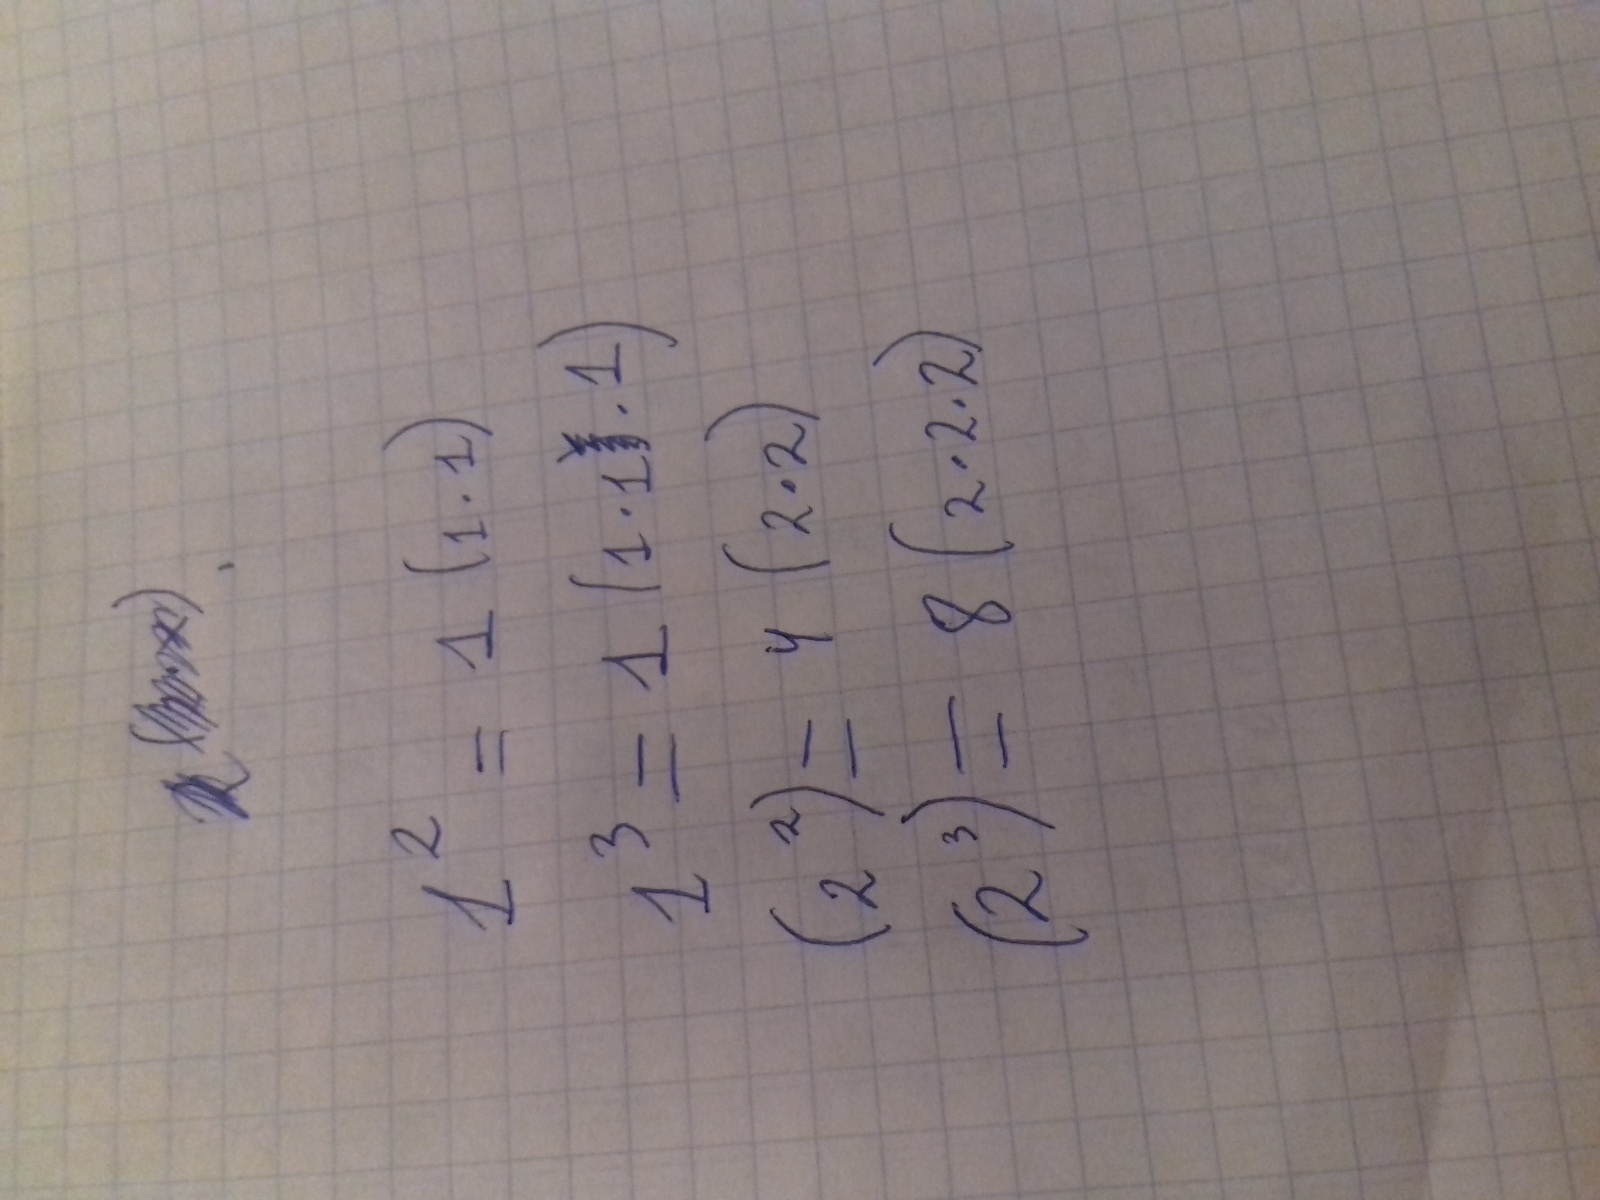 1² = 1 (1·1)
1³ = 1 (1·1·1)
(2²) = 4 (2·2)
(2³) = 8 (2·2·2)